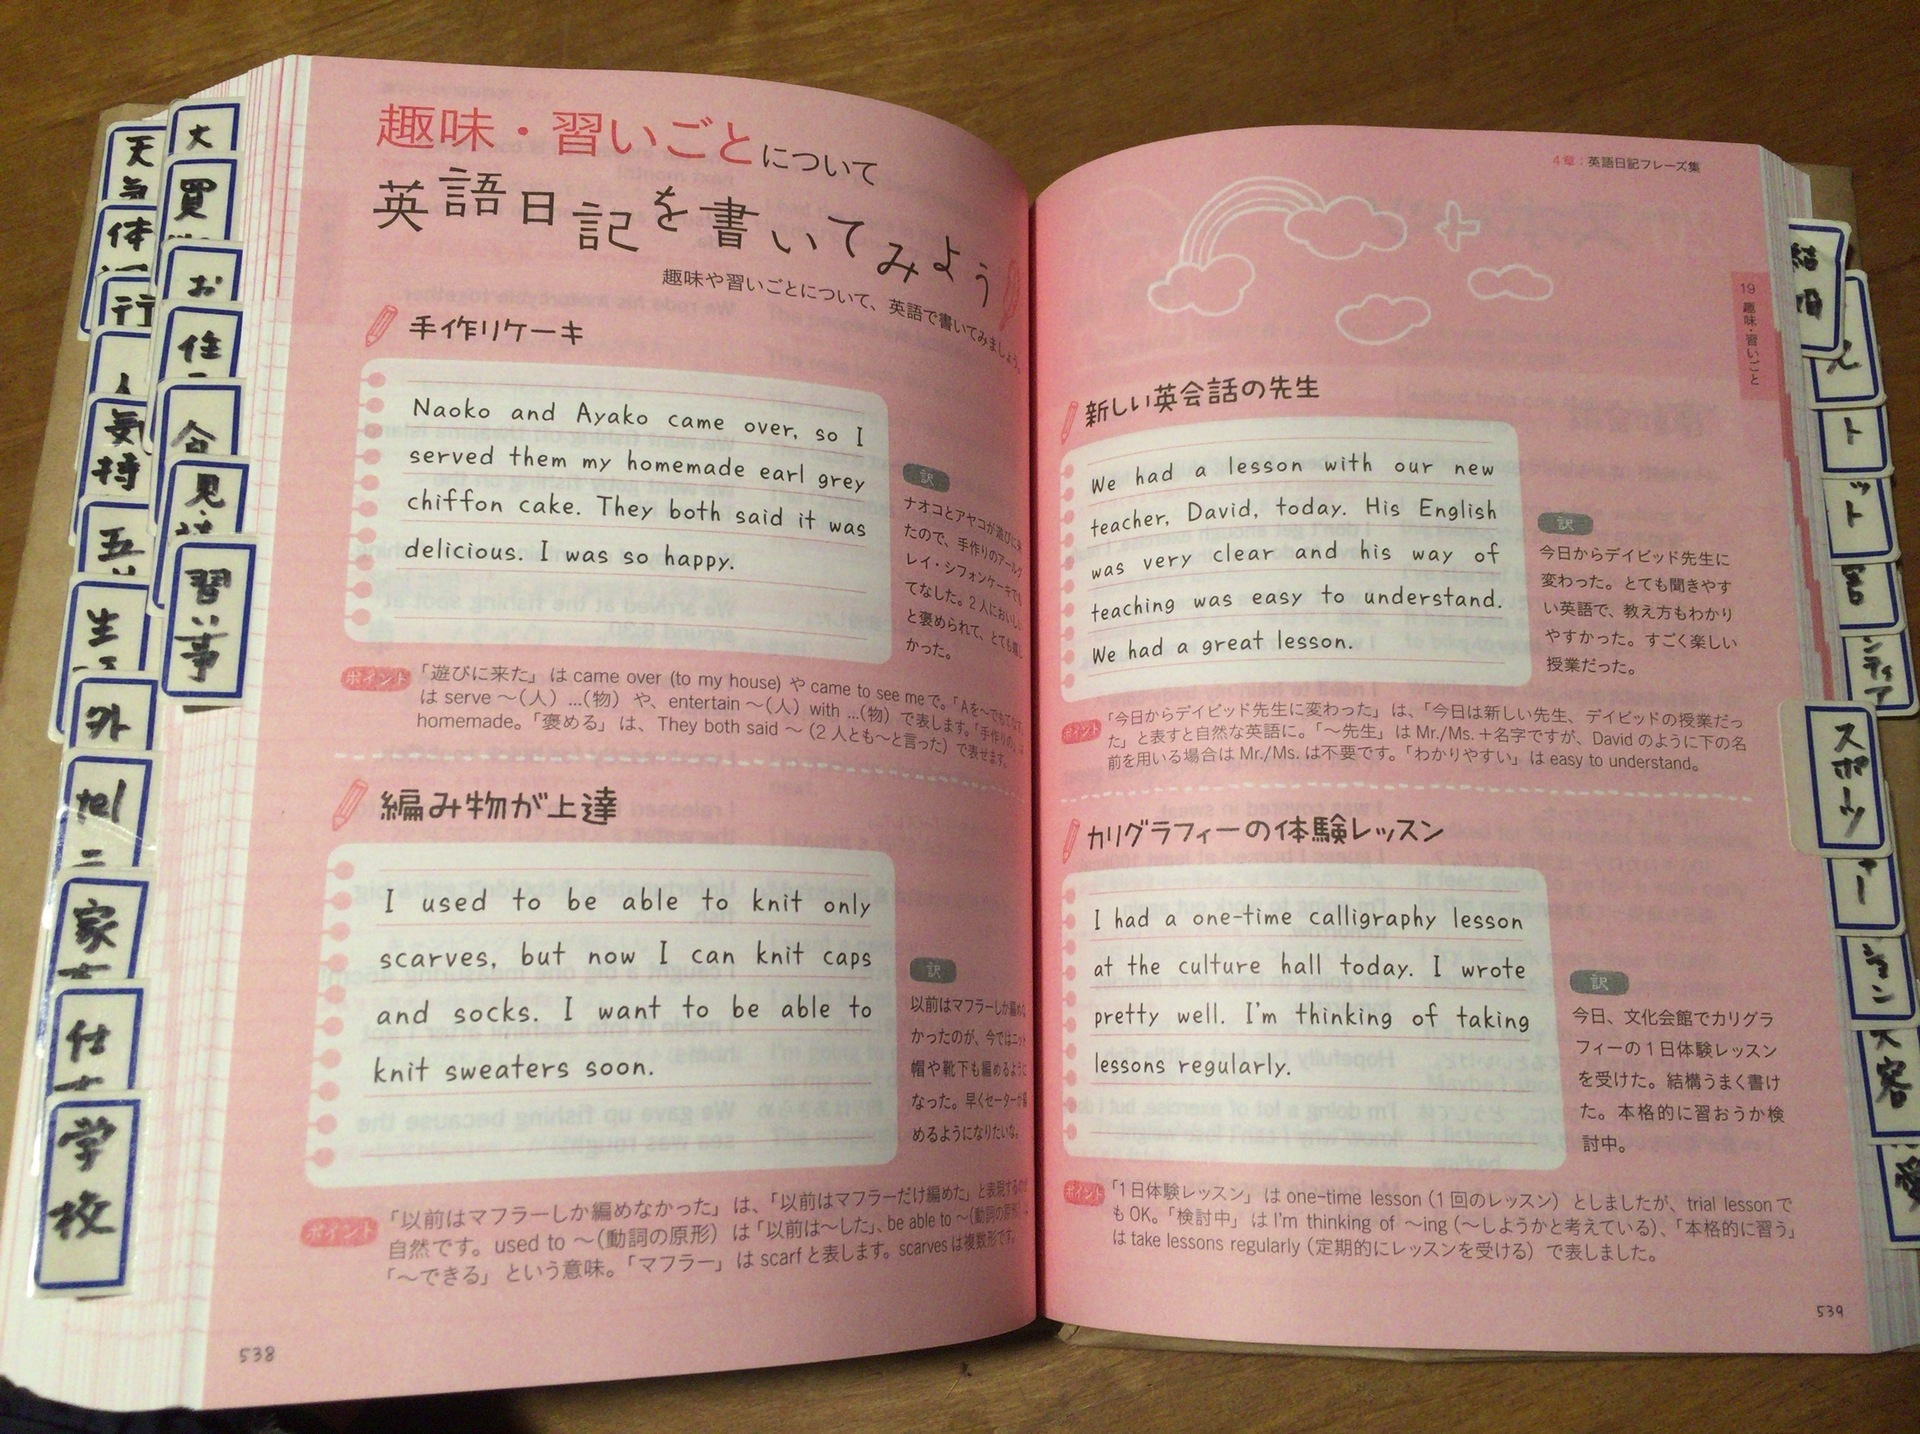 趣味・習いごとについて
英語日記を書いてみよう
趣味や習いごとについて、英語で書いてみましょう。
手作りケーキ
Naoko and Ayako came over, so I
served them my homemade earl grey
chiffon cake. They both said it was
delicious. I was so happy.
訳
ナオコとアヤコが遊びに来
たので、手作りのアールグ
レイ・シフォンケーキでも
てなした。2人においしい
と褒められて、とても嬉し
かった。
ポイント
「遊びに来た」は came over (to my house) や came to see me で。「Aを〜でもてなす」
は serve 〜(人) ...(物) や、entertain 〜(人) with ...(物) で表します。「手作りの」は
homemade。「褒める」は、They both said 〜 (2人とも〜と言った) で表せます。
編み物が上達
I used to be able to knit only
scarves, but now I can knit caps
and socks. I want to be able to
knit sweaters soon.
訳
以前はマフラーしか編めな
かったのが、今ではニット
帽や靴下も編めるように
なった。早くセーターが編
めるようになりたいな。
ポイント
「以前はマフラーしか編めなかった」は、「以前はマフラーだけ編めた」と表現するのが
自然です。used to 〜(動詞の原形) は「以前は〜した」、be able to 〜(動詞の原形) は
「〜できる」という意味。「マフラー」は scarf と表します。scarves は複数形です。
538
4章：英語日記フレーズ集
19 趣味・習いごと
新しい英会話の先生
We had a lesson with our new
teacher, David, today. His English
was very clear and his way of
teaching was easy to understand.
We had a great lesson.
訳
今日からデイビッド先生に
変わった。とても聞きやす
い英語で、教え方もわかり
やすかった。すごく楽しい
授業だった。
ポイント
「今日からデイビッド先生に変わった」は、「今日は新しい先生、デイビッドの授業だっ
た」と表すと自然な英語に。「〜先生」は Mr./Ms.＋名字ですが、David のように下の名
前を用いる場合は Mr./Ms. は不要です。「わかりやすい」は easy to understand。
カリグラフィーの体験レッスン
I had a one-time calligraphy lesson
at the culture hall today. I wrote
pretty well. I'm thinking of taking
lessons regularly.
訳
今日、文化会館でカリグラ
フィーの1日体験レッスン
を受けた。結構うまく書け
た。本格的に習おうか検
討中。
ポイント
「1日体験レッスン」は one-time lesson (1回のレッスン) としましたが、trial lesson で
もOK。「検討中」は I'm thinking of 〜ing (〜しようかと考えている)、「本格的に習う」
は take lessons regularly (定期的にレッスンを受ける) で表しました。
539
天気
体
行
人
気持
五
生
外
tel
家
仕
学校
大
買
お
住
合
見
習い事
結婚
ト
ット
スポーツ
ョン
容
愛